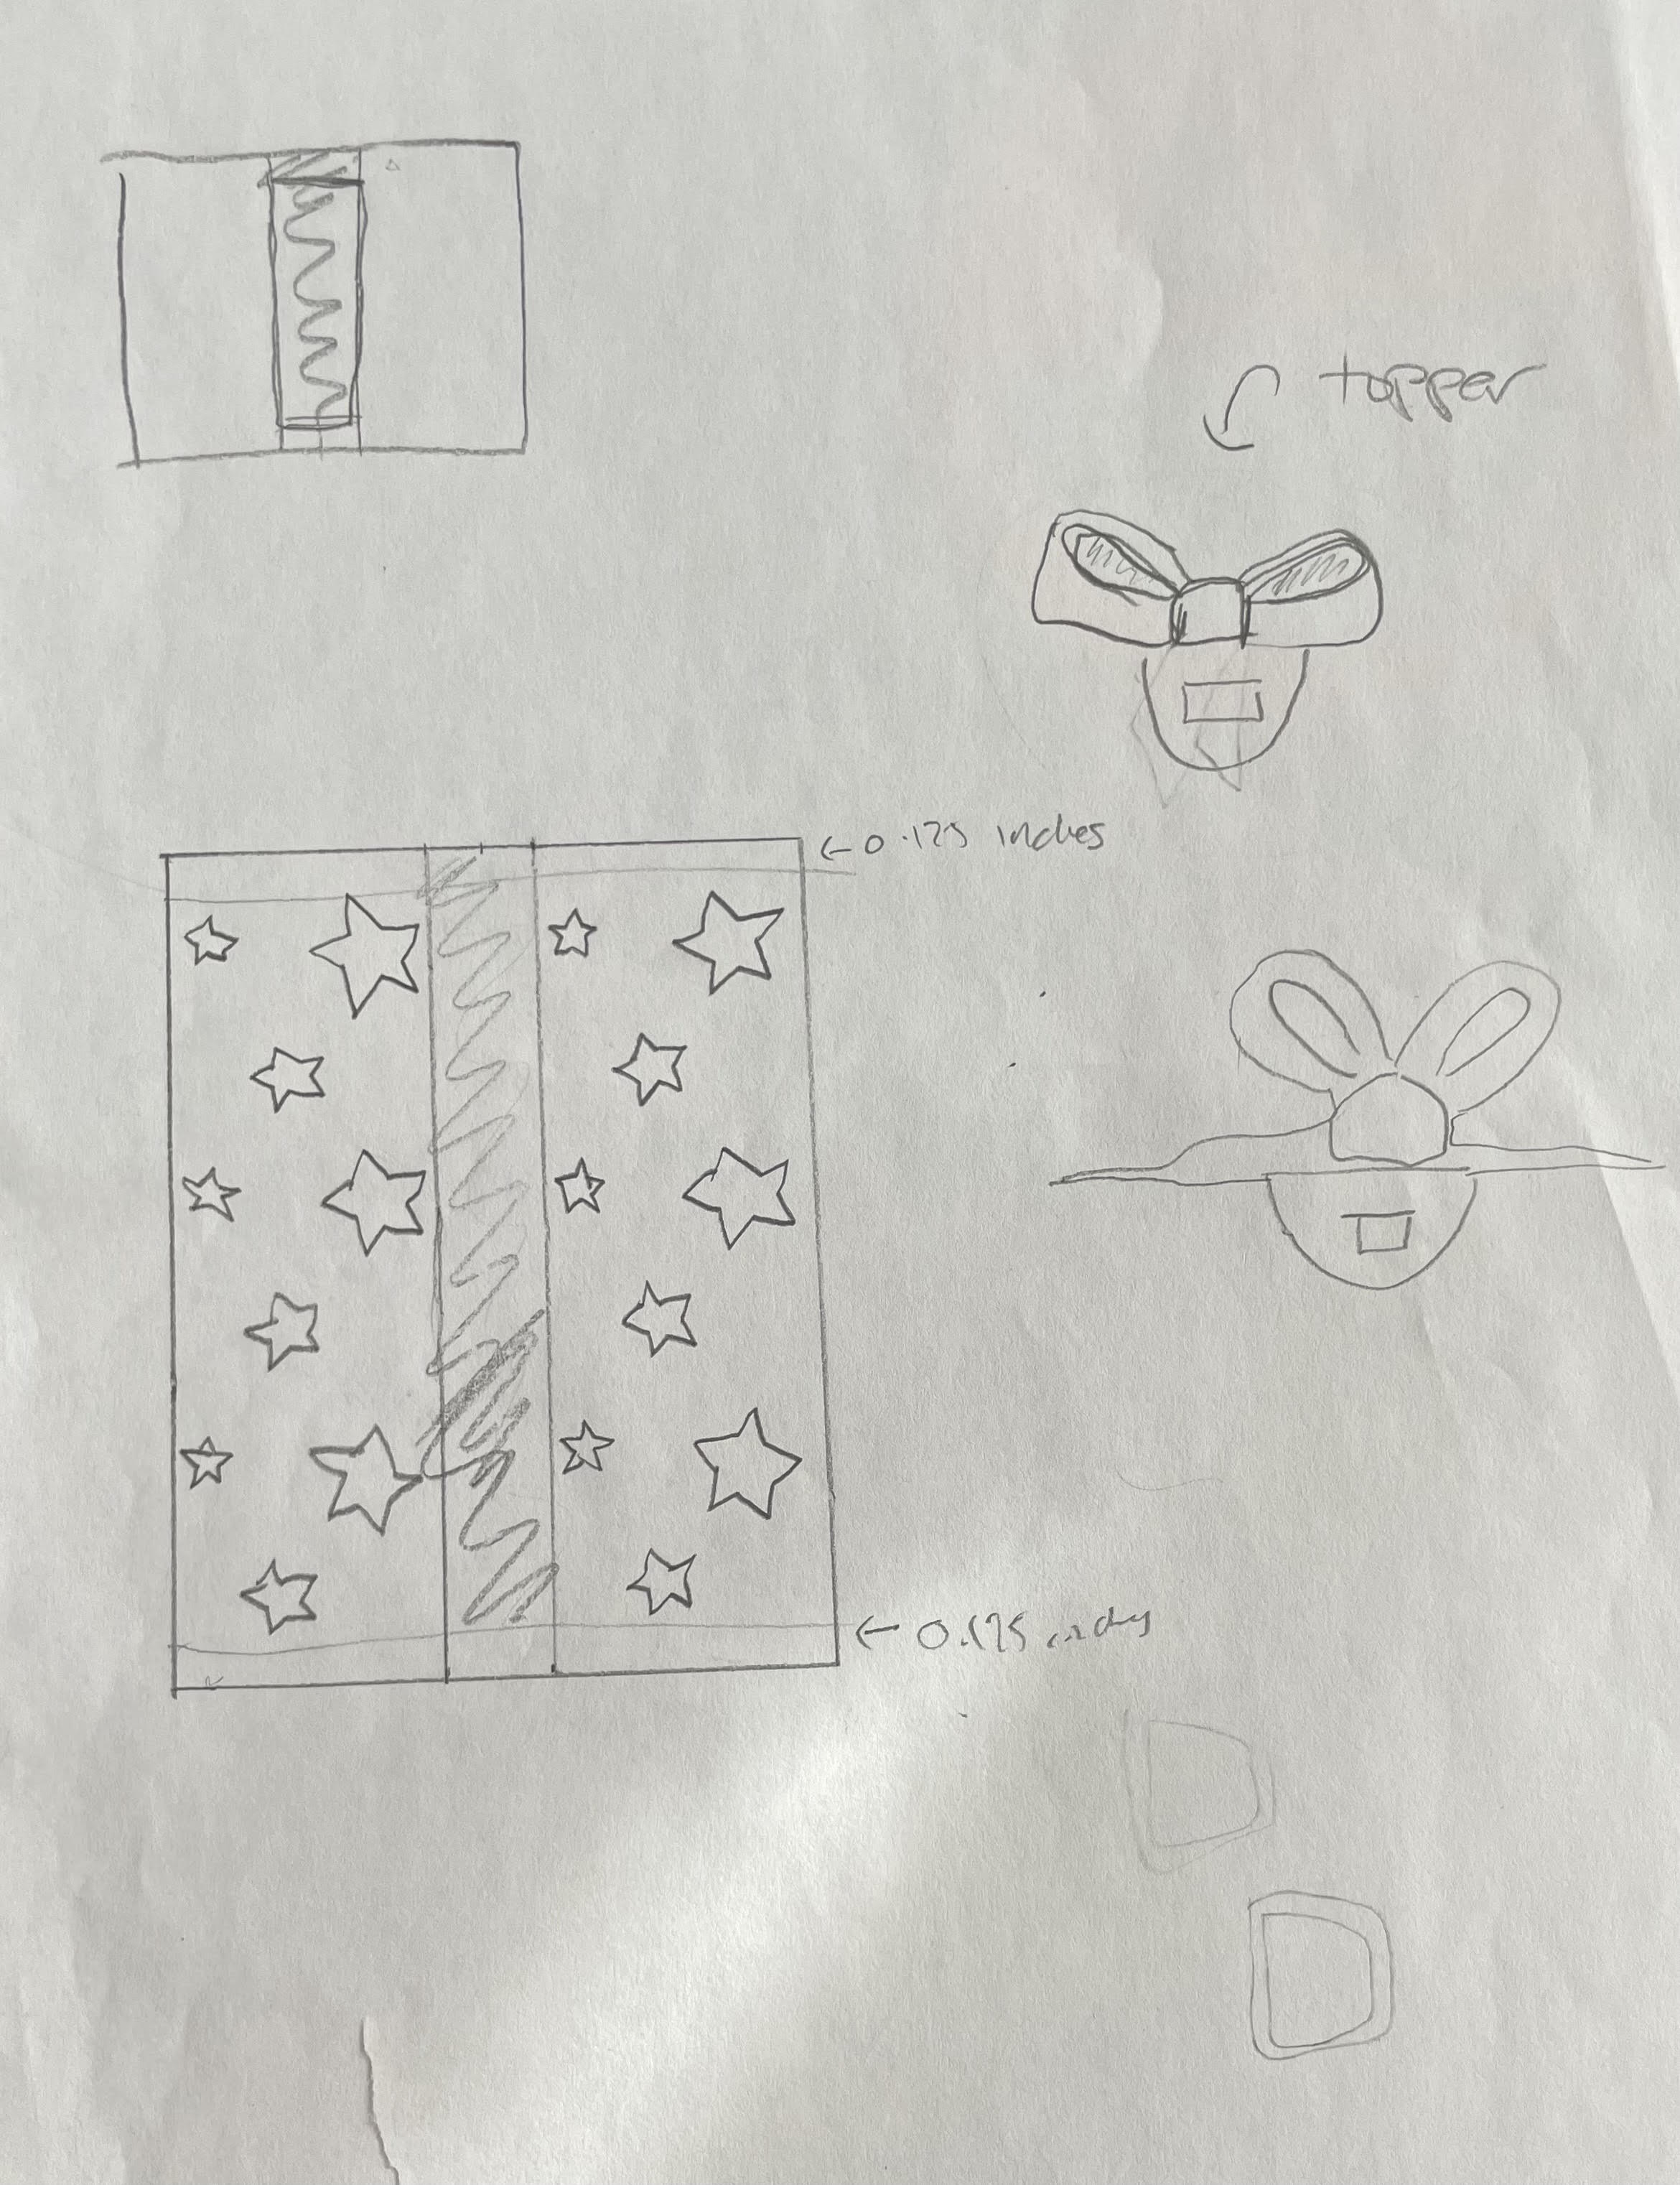 topper
← 0.125 inches
← 0.125 inches